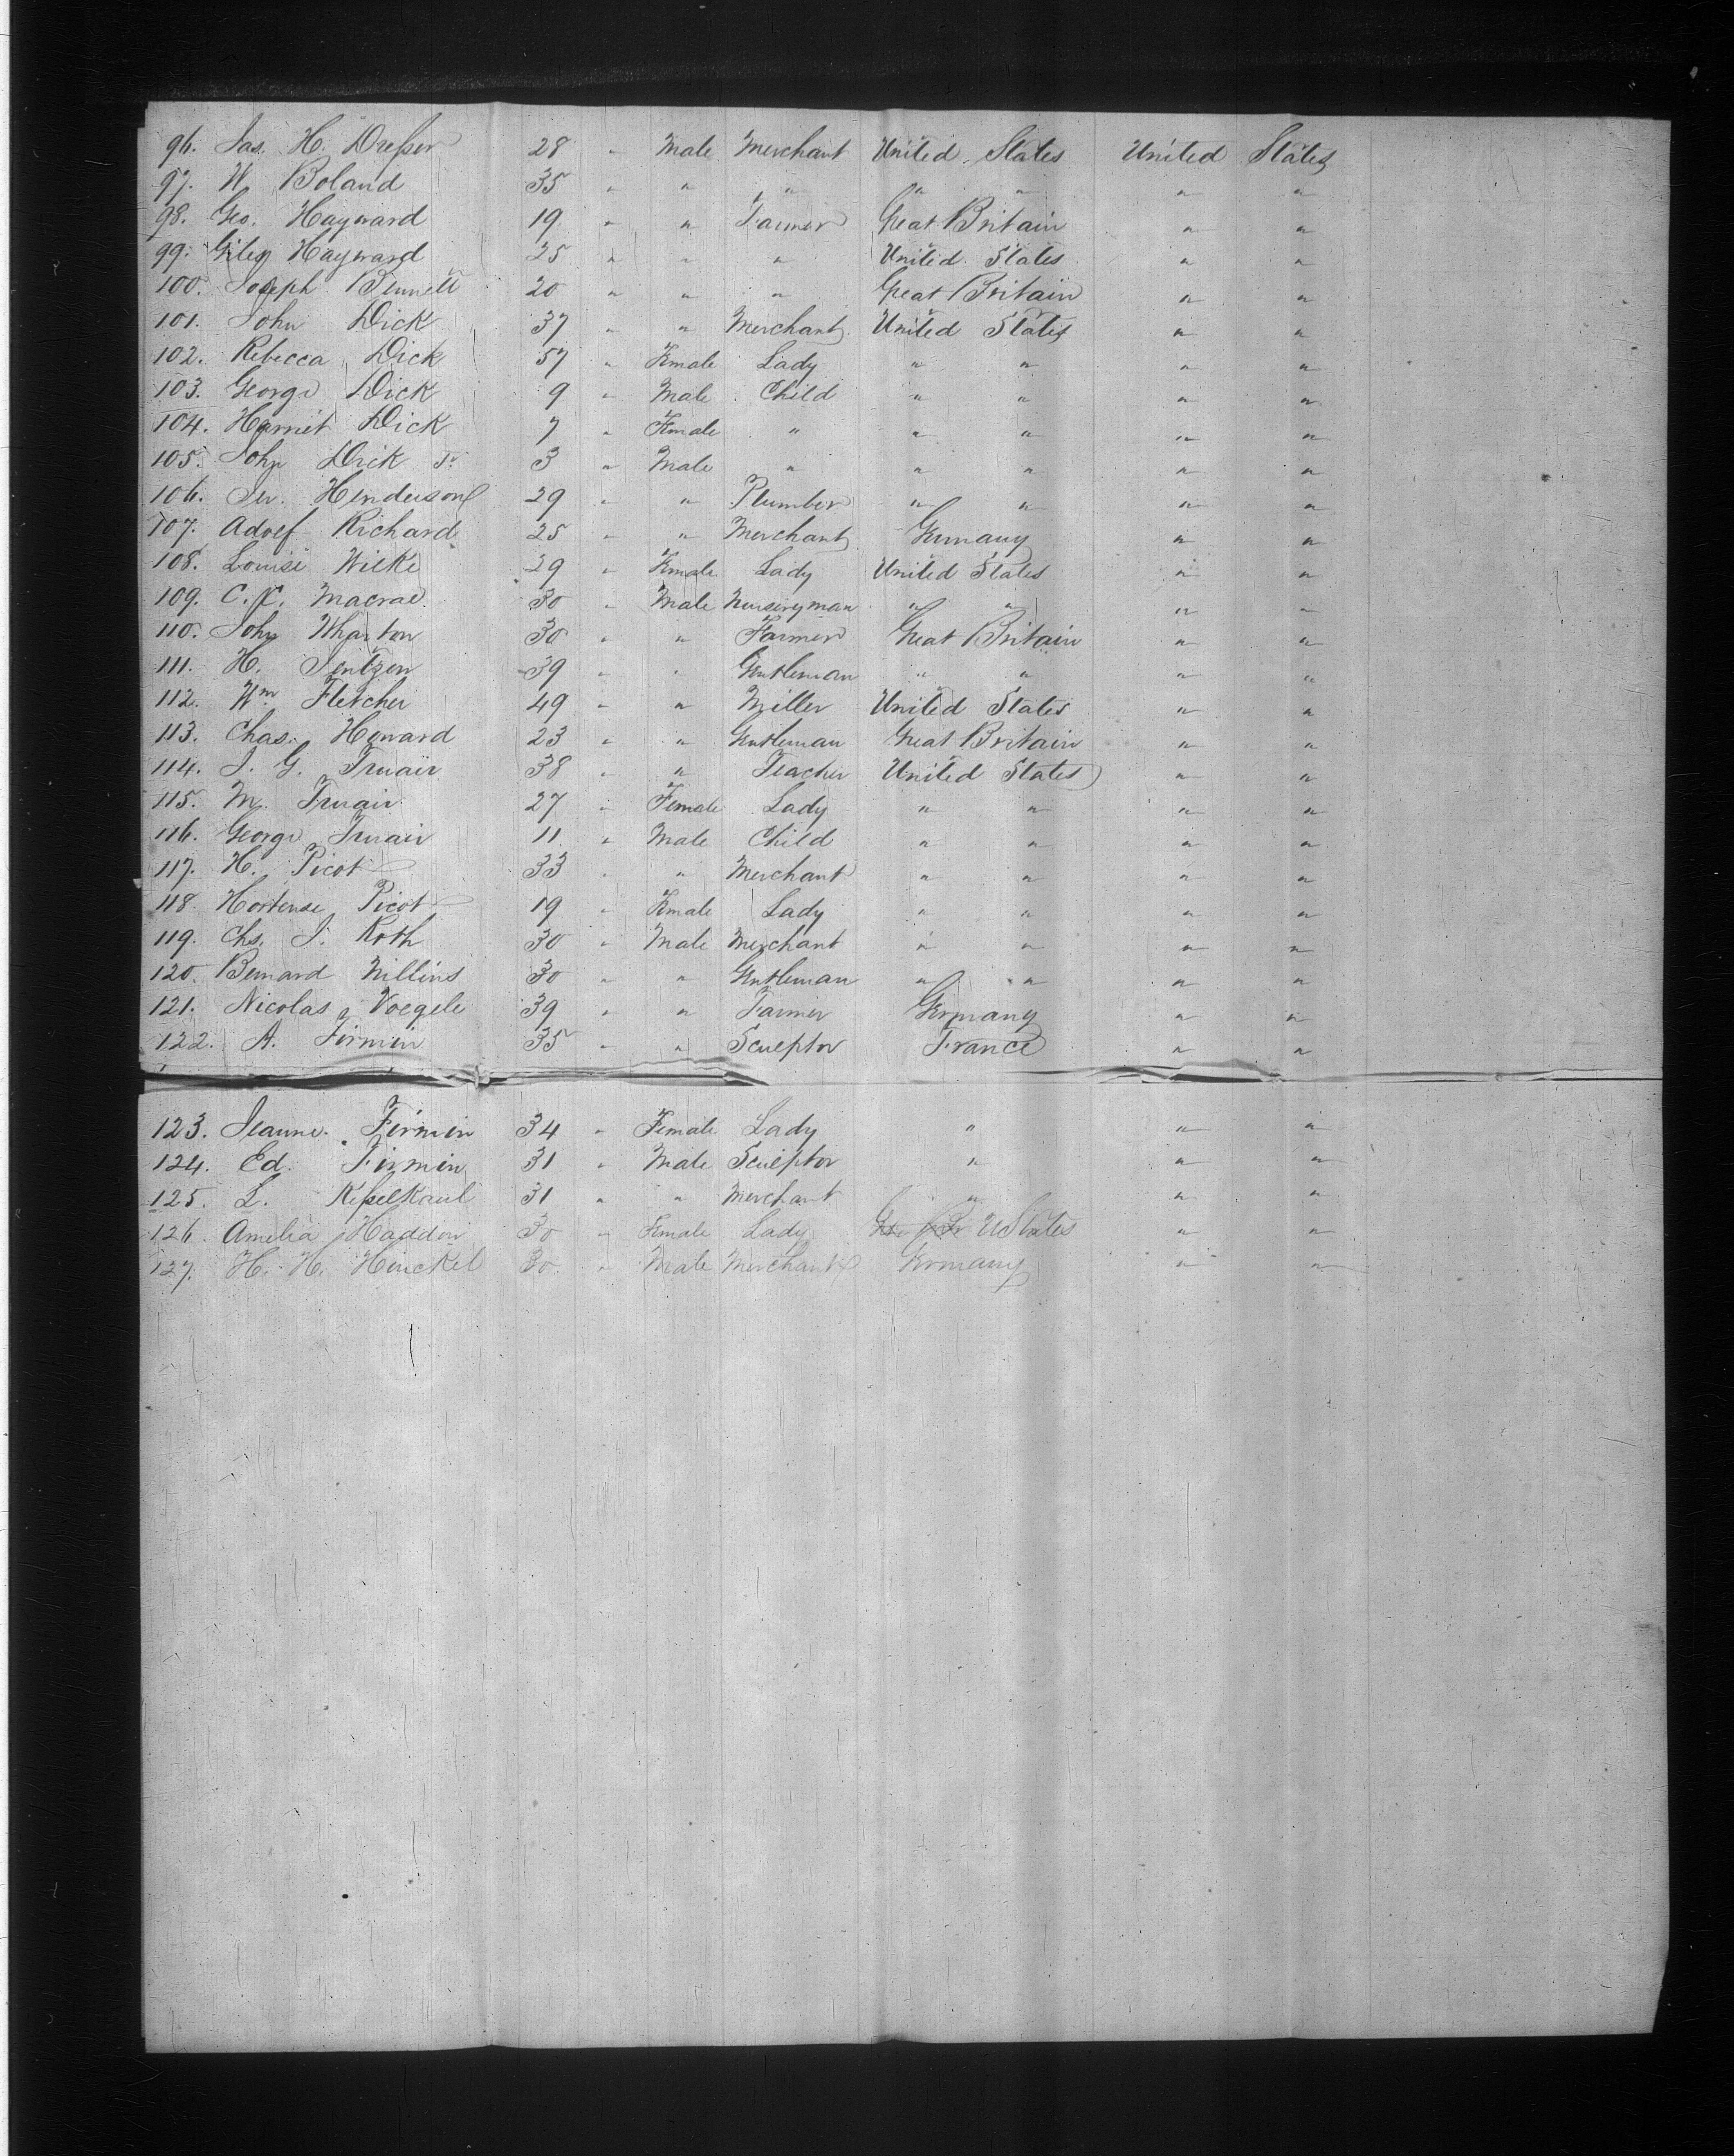 96. Jas. H. Dresser 28 " Male Merchant United States United States
97. W Boland 35 " " " " " " "
98. Geo. Hayward 19 " " Farmer Great Britain " "
99. Giles Hayward 25 " " " United States " "
100. Joseph Bennett 20 " " " Great Britain " "
101. John Dick 37 " " Merchant United States " "
102. Rebecca Dick 57 " Female Lady " " " "
103. George Dick 9 " Male Child " " " "
104. Harriet Dick 7 " Female " " " " "
105. John Dick Jr 3 " Male " " " " "
106. Henderson 29 " " Plumber " " " "
107. Adolf Richard 25 " " Merchant Germany " "
108. Louise Wilke 29 " Female Lady United States " "
109. C. Macrae. 30 " Male Nurseryman " " " "
110. John Wharton 30 " " Farmer Great Britain " "
111. H. Jentzen 39 " " Gentleman " " " "
112. Wm Fletcher 49 " " Miller United States " "
113. Chas. Howard 23 " " Gentleman Great Britain " "
114. J. G. Truair 38 " " Teacher United States " "
115. M. Truair 27 " Female Lady " " " "
116. George Truair 11 " Male Child " " " "
117. H. Picot 33 " " Merchant " " " "
118. Hortense Picot 19 " Female Lady " " " "
119. Chs. J. Roth 30 " Male Merchant " " " "
120. Bernard 30 " " Gentleman " " " "
121. Nicolas Voegele 39 " " Farmer Germany " "
122. A. Firmin 35 " " Sculptor France " "
123. Jeanne Firmin 34 " Female Lady " " "
124. Ed. Firmin 31 " Male Sculptor " " "
125. L. 31 " " Merchant " " "
126. Amelia Haddon 30 " Female Lady UStates " "
127. H. H. Henckel 30 " Male Merchant Germany " "